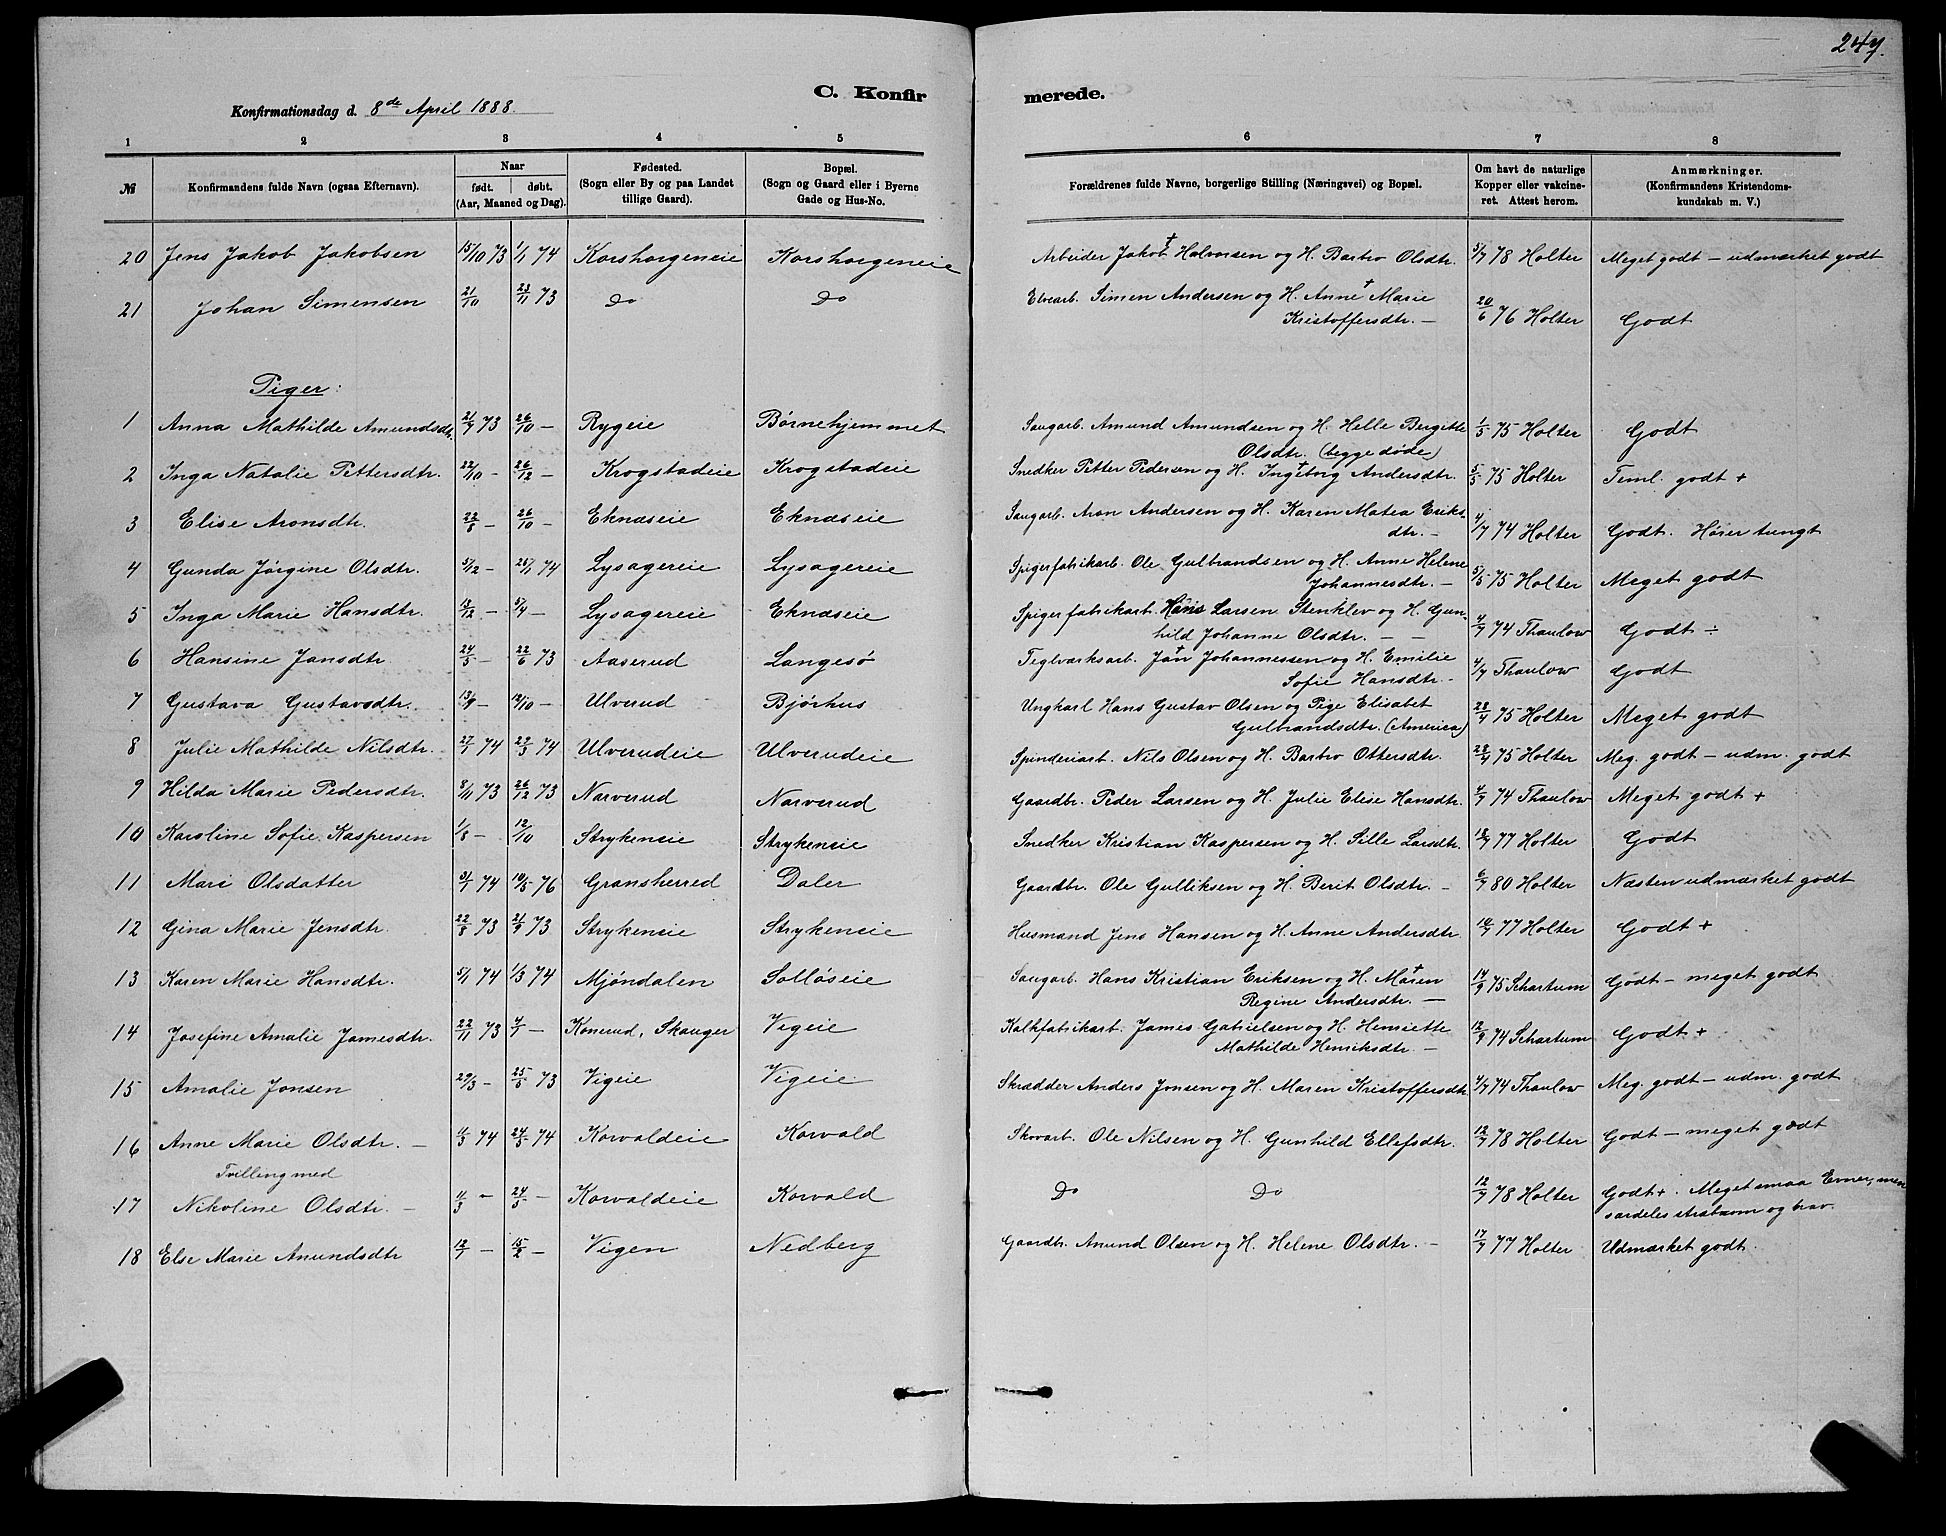 247.
C. Konfirmerede.
Konfirmationsdag d. 8de April 1888.
1 2 3 4 5 6 7 8
№ Konfirmandens fulde Navn (ogsaa Efternavn). Naar født. døbt. (Aar, Maaned og Dag). Fødested. (Sogn eller By og paa Landet tillige Gaard). Bopæl. (Sogn og Gaard eller i Byerne Gade og Hus-No. Forældrenes fulde Navne, borgerlige Stilling (Næringsvei) og Bopæl. Om havt de naturlige Kopper eller vakcineret. Attest herom. Anmærkninger. (Konfirmandens Kristendomskundskab m. V.)
20 Jens Jakob Jakobsen 15/10 73 1/1 74 Korshorgeneie Korshorgeneie Arbeider Jakob † Halvorsen og H. Barbro Olsdtr. 5/7 78 Holter Meget godt – udmærket godt
21 Johan Simensen 21/10 23/11 73 Do Do Elvearb. Simen Andersen og H. Anne † Marie
Kristoffersdtr. – 20/6 76 Holter Godt
Piger:
1 Anna Mathilde Amundsdtr. 21/7 73 26/10 – Rygeie Børnehjemmet Saugarb. Amund Amundsen og H. Helle Bergitte
Olsdtr. (begge døde) 1/5 75 Holter Godt
2 Inga Natalie Pettersdtr. 22/10 – 26/12 – Krogstadeie Krogstadeie Snedker Petter Pedersen og H. Ingeborg † Andersdtr. 5/5 75 Holter Teml. godt +
3 Elise Aronsdtr. 22/8 – 26/10 – Eknæseie Eknæseie Saugarb. Aron Andersen og H. Karen Matea Eriks-
dtr. – 4/7 74 Holter Godt. Hører tungt
4 Gunda Jørgine Olsdtr. 5/12 – 25/1 74 Lysagereie Lysagereie Spigerfabrikarb. Ole Gulbrandsen og H. Anne Helene
Johannesdtr. – 5/5 75 Holter Meget godt
5 Inga Marie Hansdtr. 13/12 – 5/4 – Lysagereie Eknæseie Spigerfabrikarb. Hans Larsen Stenklev og H. Gun-
hild Johanne Olsdtr. – – 4/7 74 Thaulow Godt ÷
6 Hansine Jansdtr 24/5 – 22/6 73 Aaserud Langesø Teglværksarb. Jan † Johannessen og H. Emilie
Sofie Hansdtr. – 4/7 Thaulow Godt
7 Gustava Gustavsdtr. 13/9 – 12/10 – Ulverud Bjørhus Ungkarl Hans Gustav Olsen og Pige Elisabet
Gulbrandsdtr. (America) 28/4 75 Holter Meget godt
8 Julie Mathilde Nilsdtr. 27/1 74 29/3 74 Ulverudeie Ulverudeie Spinderiarb. Nils Olsen og H. Barbro Ottersdtr. 28/4 75 Holter Meg. godt – udm. godt
9 Hilda Marie Pedersdtr. 8/11 73 26/12 73 Narverud Narverud Gaardbr. Peder Larsen og H. Julie Elise Hansdtr. 4/7 74 Thaulow Meget godt +
10 Karoline Sofie Kaspersen 1/8 – 12/10 Strykeneie Strykeneie Snedker Kristian Kaspersen og H. Sille Larsdtr. 18/7 77 Holter Godt
11 Mari Olsdatter 31/1 74 10/5 76 Gransherred Daler Gaardbr. Ole Gulliksen og H. Berit Olsdtr. – 6/7 80 Holter Næsten udmærket godt
12 Gina Marie Jensdtr. 22/8 73 21/9 73 Strykeneie Strykeneie Husmand Jens Hansen og H. Anne Andersdtr. 10/7 77 Holter Godt +
13 Karen Marie Hansdtr. 5/1 74 1/3 74 Mjøndalen Solløseie Saugarb. Hans Kristian Eriksen og H. Maren †
Regine Andersdtr. – 14/9 75 Schartum Godt – meget godt
14 Josefine Amalie Jamesdtr. 22/11 73 4/1 – Konerud, Skauger Vigeie Kalkfabrikarb. James Gabrielsen og H. Henriette
Mathilde Henriksdtr – 12/9 74 Schartum Godt +
15 Amalie Jonsen 29/3 – 25/5 73 Vigeie Vigeie Skrædder Anders Jonsen og H. Maren Kristoffersdtr 4/7 74 Thaulow Meg. godt – udm. godt
16 Anne Marie Olsdtr. – 11/3 74 24/5 74 Korvaldeie Korvald Skovarb. Ole Nilsen og H. Gunhild Ellefsdtr. 12/7 78 Holter Godt – meget godt
Tvilling med
17 Nikoline Olsdtr. – 11/3 – 24/5 – Korvaldeie Korvald Do Do 12/7 78 Holter Godt +. Meget smaa Evner, men
særdeles stræbsom og brav.
18 Else Marie Amundsdtr 12/1 – 15/2 – Vigen Nedberg Gaardbr. Amund Olsen og H. Helene Olsdtr. – 17/7 77 Holter Udmærket godt.